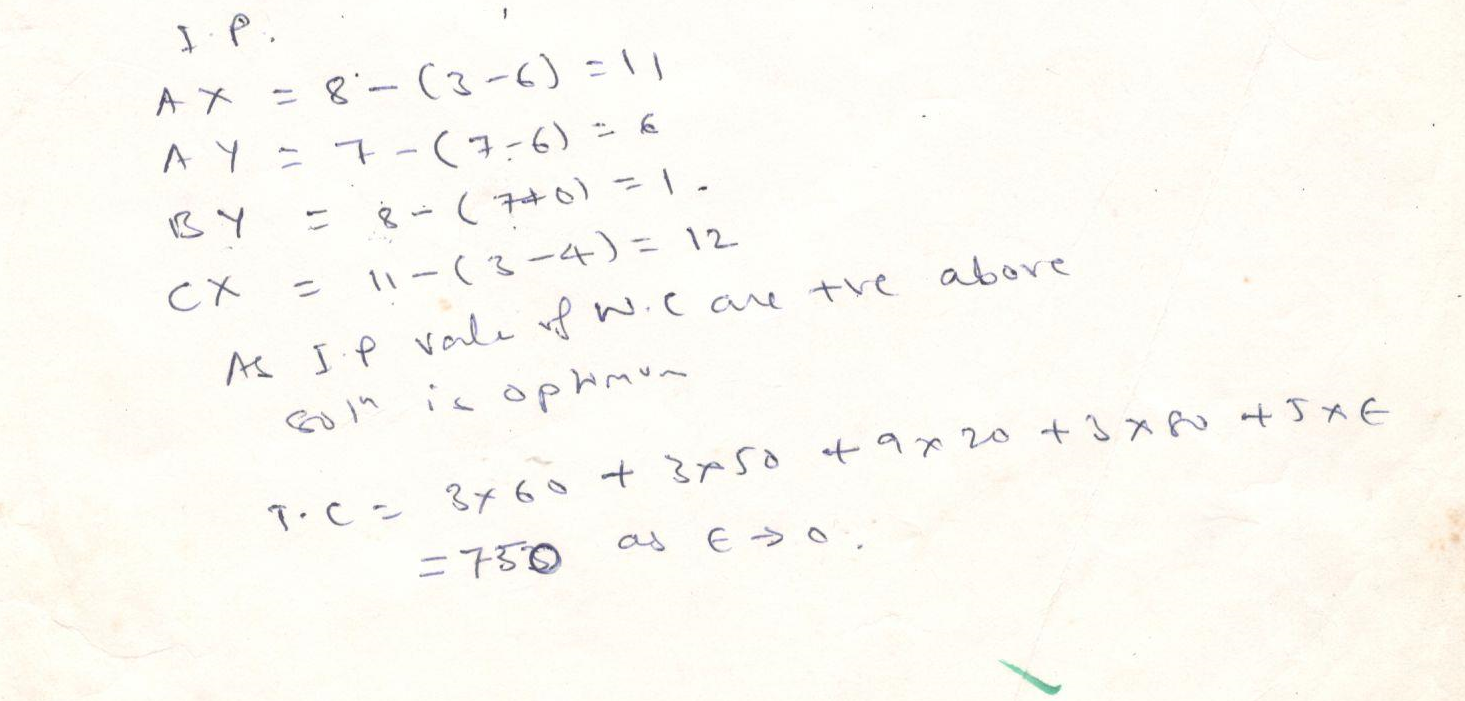 I.P.
AX = 8 - (3-6) = 11
AY = 7 - (7-6) = 6
BY = 8 - (7+0) = 1.
CX = 11 - (3-4) = 12
As I.P vale of W.C are +ve above
soln is optimum
T.C = 3×60 + 3×50 + 9×20 + 3×80 + 5×ϵ
= 750 as ϵ → 0.